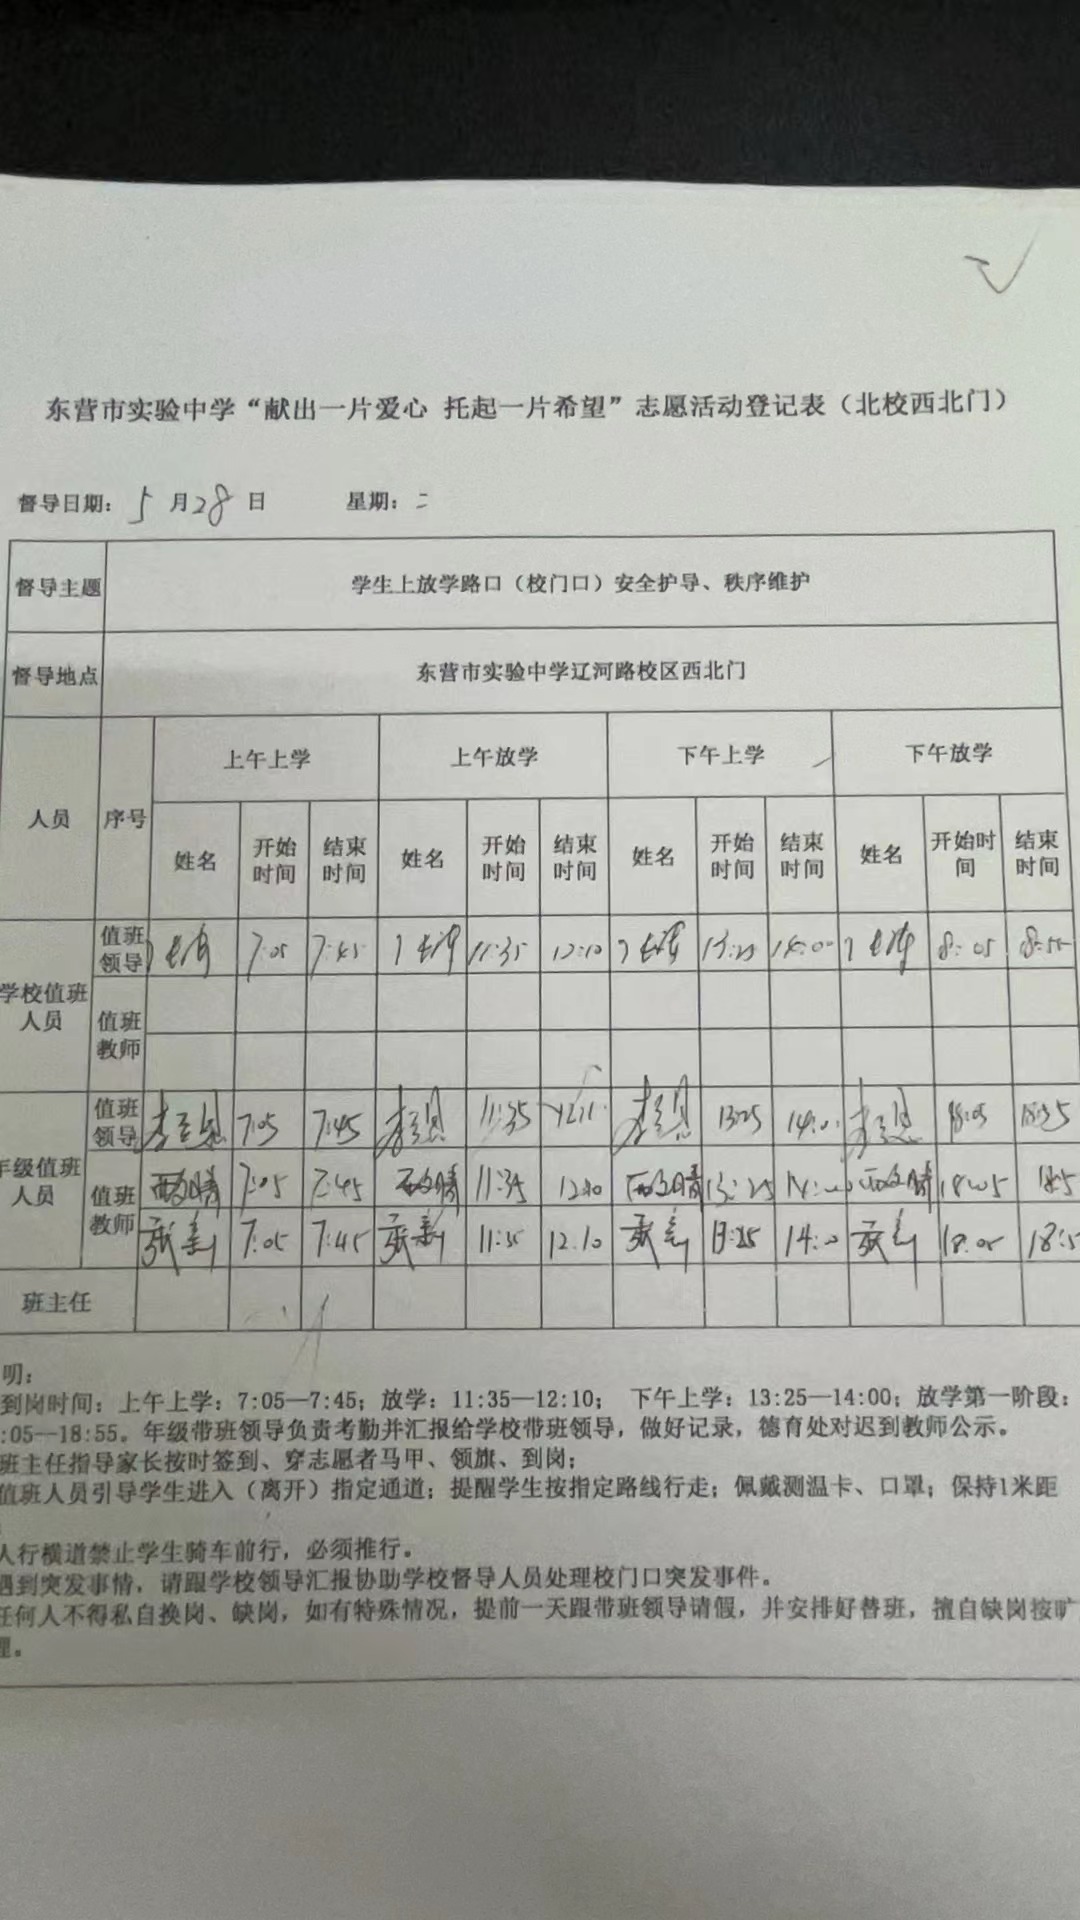 东营市实验中学“献出一片爱心 托起一片希望”志愿活动登记表（北校西北门）
督导日期： 5 月 28 日 星期：二
督导主题 学生上放学路口（校门口）安全护导、秩序维护
督导地点 东营市实验中学辽河路校区西北门
人员 序号 上午上学 上午放学 下午上学 下午放学
姓名 开始时间 结束时间 姓名 开始时间 结束时间 姓名 开始时间 结束时间 姓名 开始时间 结束时间
学校值班人员 值班领导 7:05 7:45 11:35 12:10 13:25 14:00 8:05 8:55
值班教师
年级值班人员 值班领导 7:05 7:45 11:35 13:25 14:0 18:05
值班教师 7:05 7:45 11:35 12:10 13:25 18:05
张新 7:05 7:45 张新 11:35 12.10 张新 13:25 14:0 张新 18.05 18:5
班主任
明：
到岗时间：上午上学：7:05—7:45；放学：11:35—12:10； 下午上学：13:25—14:00；放学第一阶段：
:05—18:55。年级带班领导负责考勤并汇报给学校带班领导，做好记录，德育处对迟到教师公示。
班主任指导家长按时签到、穿志愿者马甲、领旗、到岗；
值班人员引导学生进入（离开）指定通道；提醒学生按指定路线行走；佩戴测温卡、口罩；保持1米距
人行横道禁止学生骑车前行，必须推行。
遇到突发事情，请跟学校领导汇报协助学校督导人员处理校门口突发事件。
任何人不得私自换岗、缺岗，如有特殊情况，提前一天跟带班领导请假，并安排好替班，擅自缺岗按旷
理。